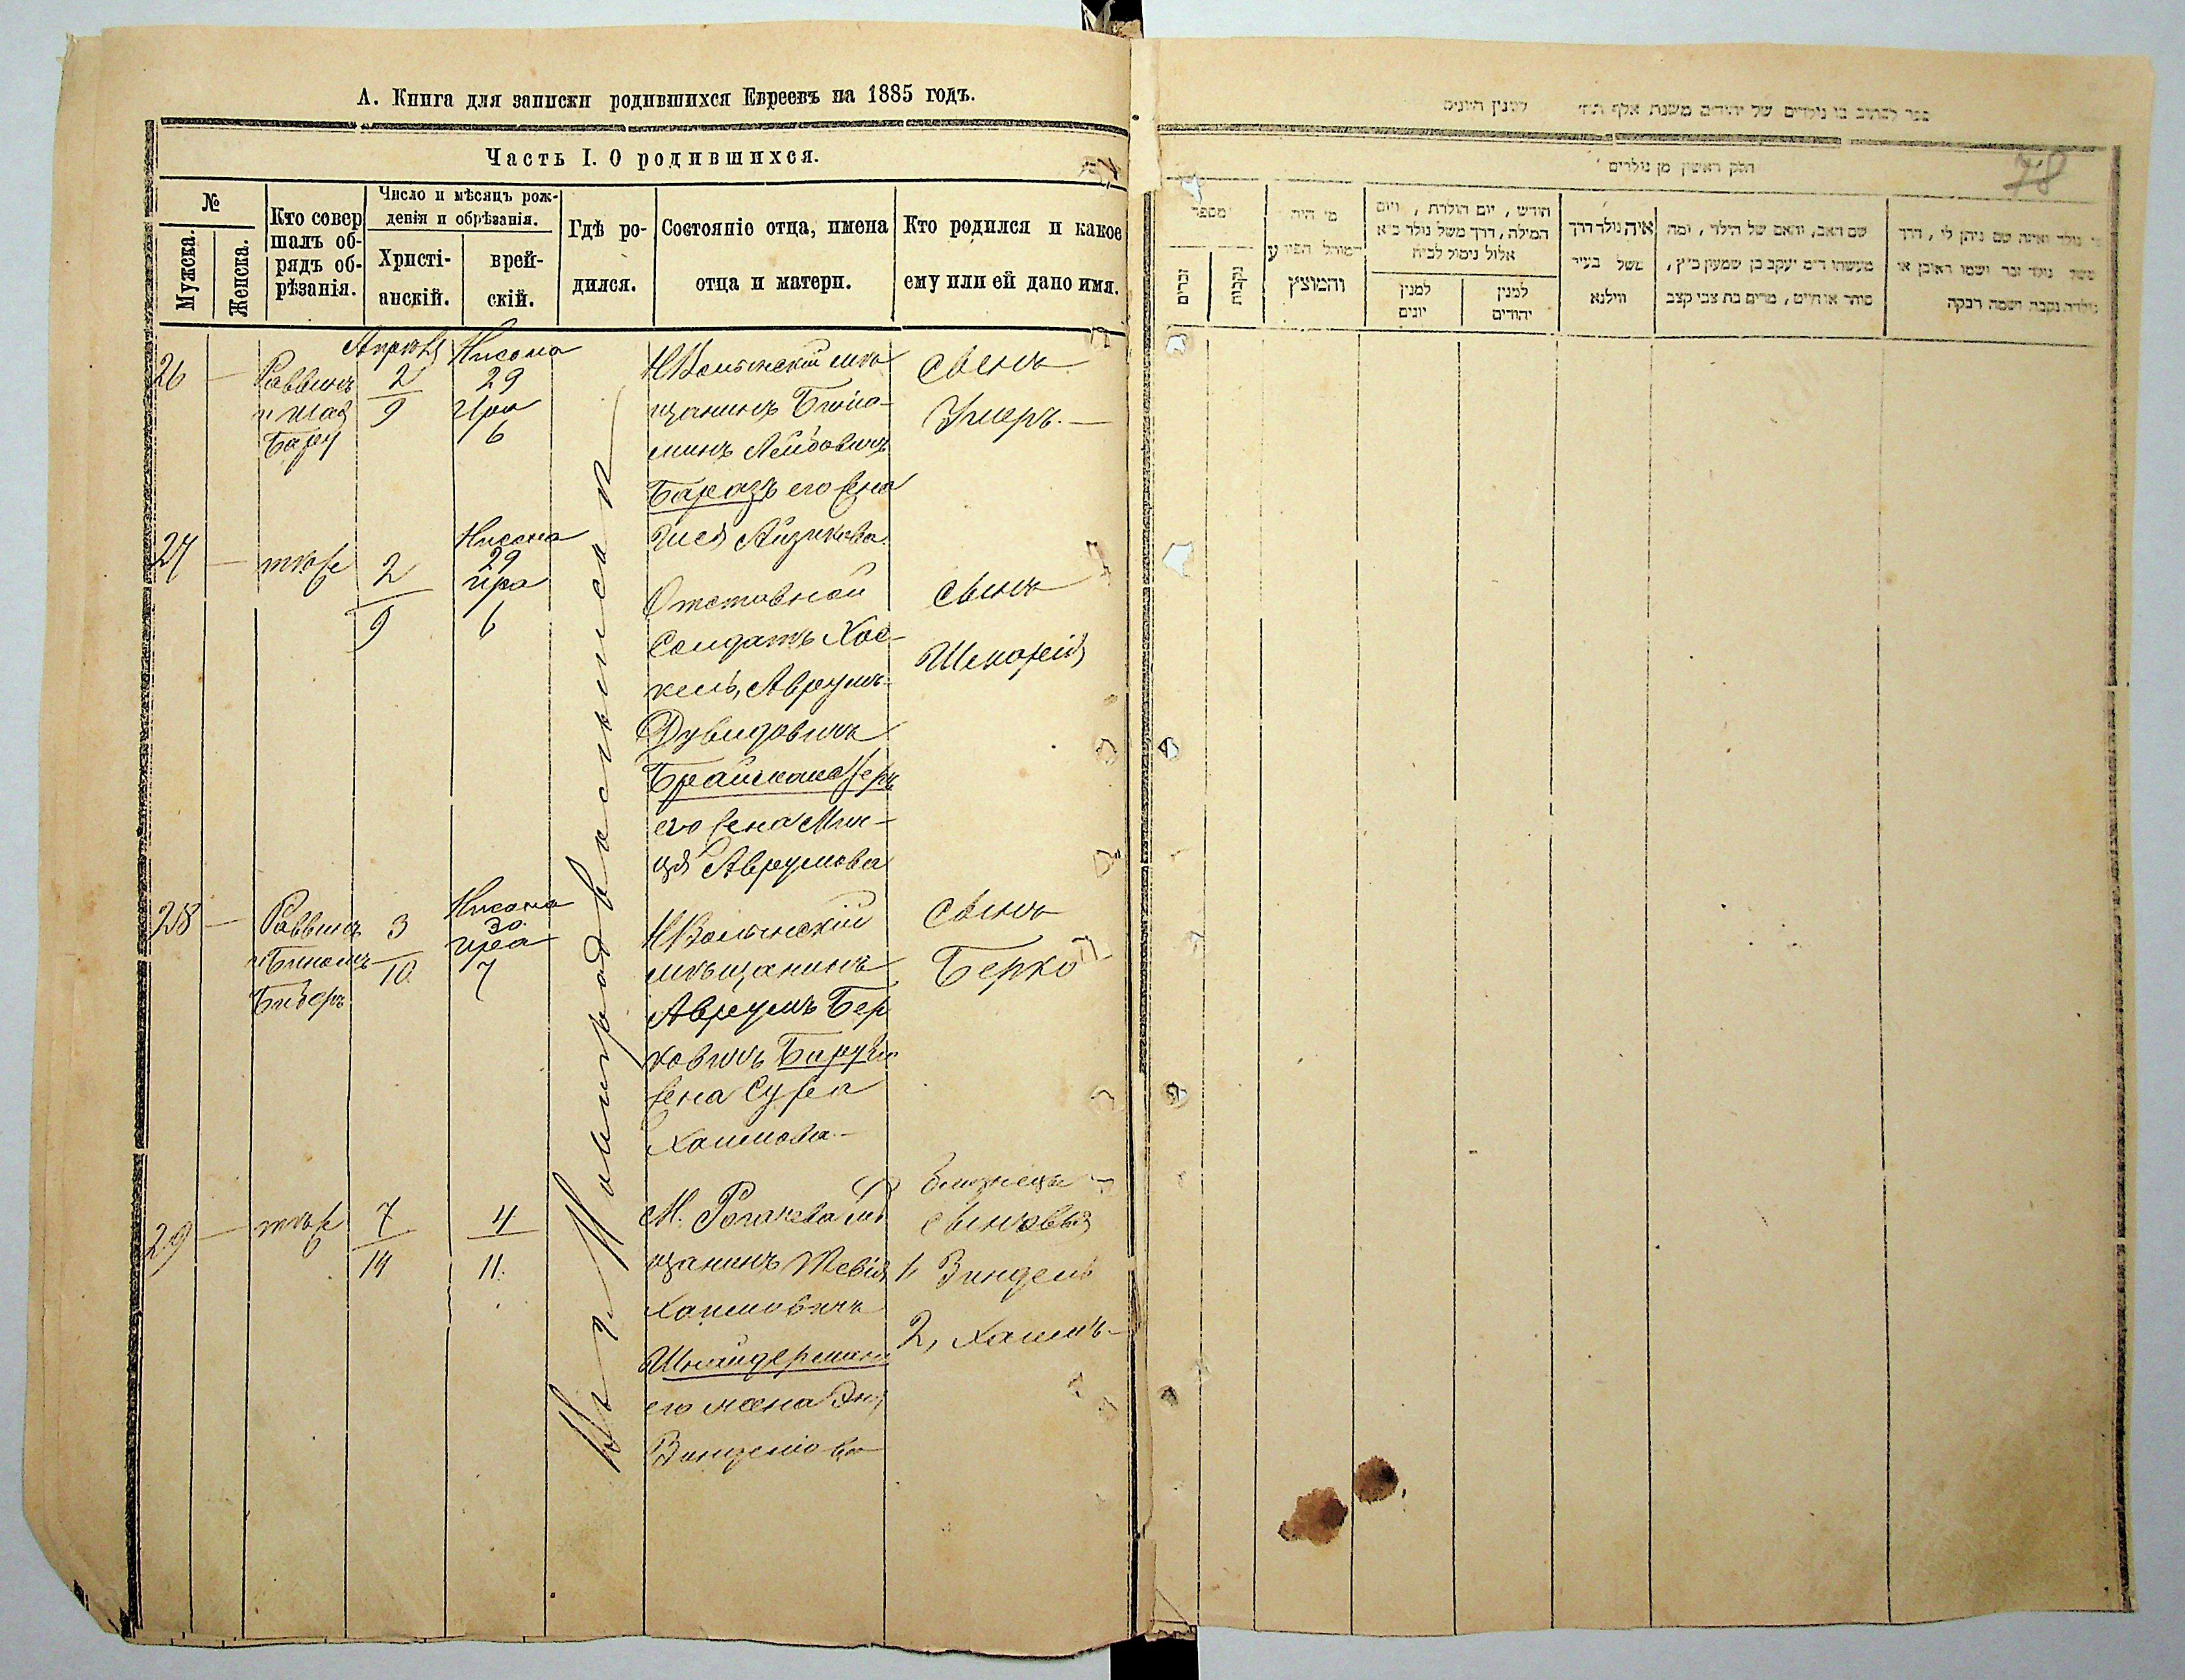 А. Книга для записки родившихся Евреевъ на 1885 годъ.
Часть I. О родившихся.
№
Мужска.
Женска.
Кто совер
шалъ об-
рядъ об-
рѣзанія.
Число и мѣсяцъ рож-
денія и обрѣзанія.
Христі-
анскій.
врей-
скій.
Гдѣ ро-
дился.
Состояніе отца, имена
отца и матери.
Кто родился и какое
ему или ей дано имя.
26 —
Раввинъ
Апрѣля
2
9
Нисона
29
Ира
6
НВолынскій мѣ
щанинъ
Лейбовичъ
его жена
Айзикова
сынъ
Умеръ. —
27 —
тоже
2
9
Нисона
29
ира
6
Отставной
Солдатъ Хас-
кель, Аврумъ-
Дувидовичъ
его жена
Аврумова
сынъ
28 —
Раввинъ
3
10
Нисона
30.
ира
7
НВолынскій
мѣщанинъ
Аврумъ Бер
ковичъ
жена Сура
Хаимова. —
Сынъ
Берко
29 —
тоже
7
14
4
11.
М. Рогачева мѣ
щанинъ Тевія
Хаимовичъ
Шнайдерманъ
его жена
Зинделіова
Близнецы
сыновья
1, Зиндель
2, Хаимъ —
Въ г. Новоградволынскѣ
78
ספר לכתוב בו נולדים של יהודים משנת אלף תת׳ למנין היונים
חלק ראשון מן נולדים
מספר
זכרים
נקבות
מי היה
המוהל הפורע
והמוצץ
חודש, יום הולדת, ויום
המילה, דרך משל נולד כ״א
אלול נימול לכ״ח
למנין
יונים
למנין
יהודים
איה נולד דרך
משל בעיר
ווילנא
שם האב, והאם של הילד, ומה
מעשהו ד״מ יעקב בן שמעון כ״ץ,
סוחר או חייט, מרים בת צבי קצב
מי נולד ואיזה שם ניתן לו, דרך
משל נולד זכר ושמו ראובן או
נולדה נקבה ושמה רבקה